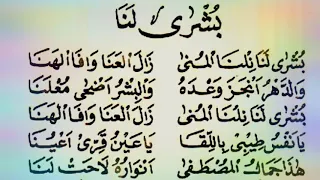 بُشْرَى لَنَا
بُشْرَى لَنَا نِلْنَا الْمُنَى زَالَ الْعَنَا وَافَا الْهَنَا
وَالدَّهْرُ اَنْجَزَ وَعْدَهُ وَالْبِشْرُ اَضْحَى مُعْلَنَا
بُشْرَى لَنَا نِلْنَا الْمُنَى زَالَ الْعَنَا وَافَا الْهَنَا
يَانَفْسُ طِيْبِى بِاللِّقَا يَاعَيْنُ قَرِّى اَعْيُنَا
هٰذَا جَمَالُ الْمُصْطَفَى اَنْوَارُهُ لَاحَتْ لَنَا